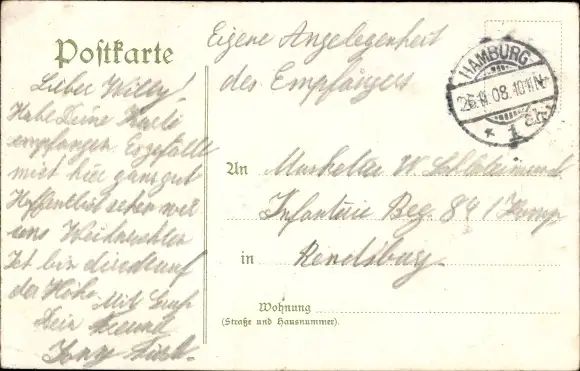 Postkarte
Eigene Angelegenheit
des Empfängers
HAMBURG
26.11.08.10-11N.
* 1 äk.
Lieber Willy!
Habe Deine Karte
empfangen. Es gefällt
mir hier ganz gut
Hoffentlich sehen wir
uns Weihnachten
der Höhe. Mit Gruß
Dein Freund
An Musketier W.
Infantrie Reg. 84 1 Komp
in Rendsburg
Wohnung
(Straße und Hausnummer).